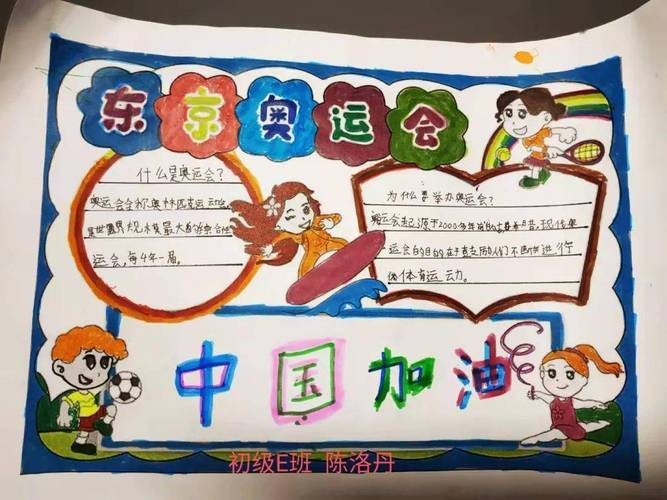 东京奥运会
什么是奥运会?
奥运会全称奥林匹克运动会,
是世界规模最大的综合性
运会,每4年一届。
为什么要举办奥运会?
奥运会起源于2000多年前的古希
运会的目的 人们不断进行
体育运动。
中国加油
初级E班 陈洛丹